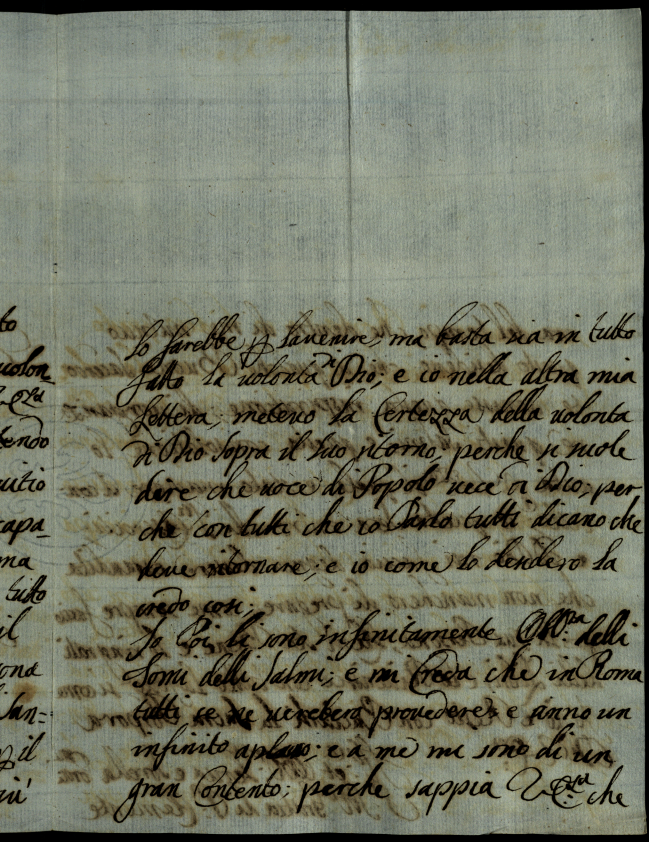 to
volon-
V. Ecc.za
tendo
vitio
capa-
ma
tutto
il
ona
San-
il
più
lo sarebbe p lauenire; ma basta uia in tutto
fatto la uolonta di Dio; e io nella altra mia
lettera; meteuo la Certezza della uolonta
di Dio sopra il suo ritorno; perche si suole
dire che uoce di Popolo uece di Dio; per
che con tutti che io Parlo tutti dicano che
deue ritornare; e io come lo desidero la
credo cosi;
Io Poi li sono infinitamente Obb.ta delli
Tomi delli Salmi; e mi Creda che in Roma
tutti se ne uerebero prouedere; e anno un
infinito aplauso; e a me mi sono di un
gran Contento; perche sappia V. Ecc.za che